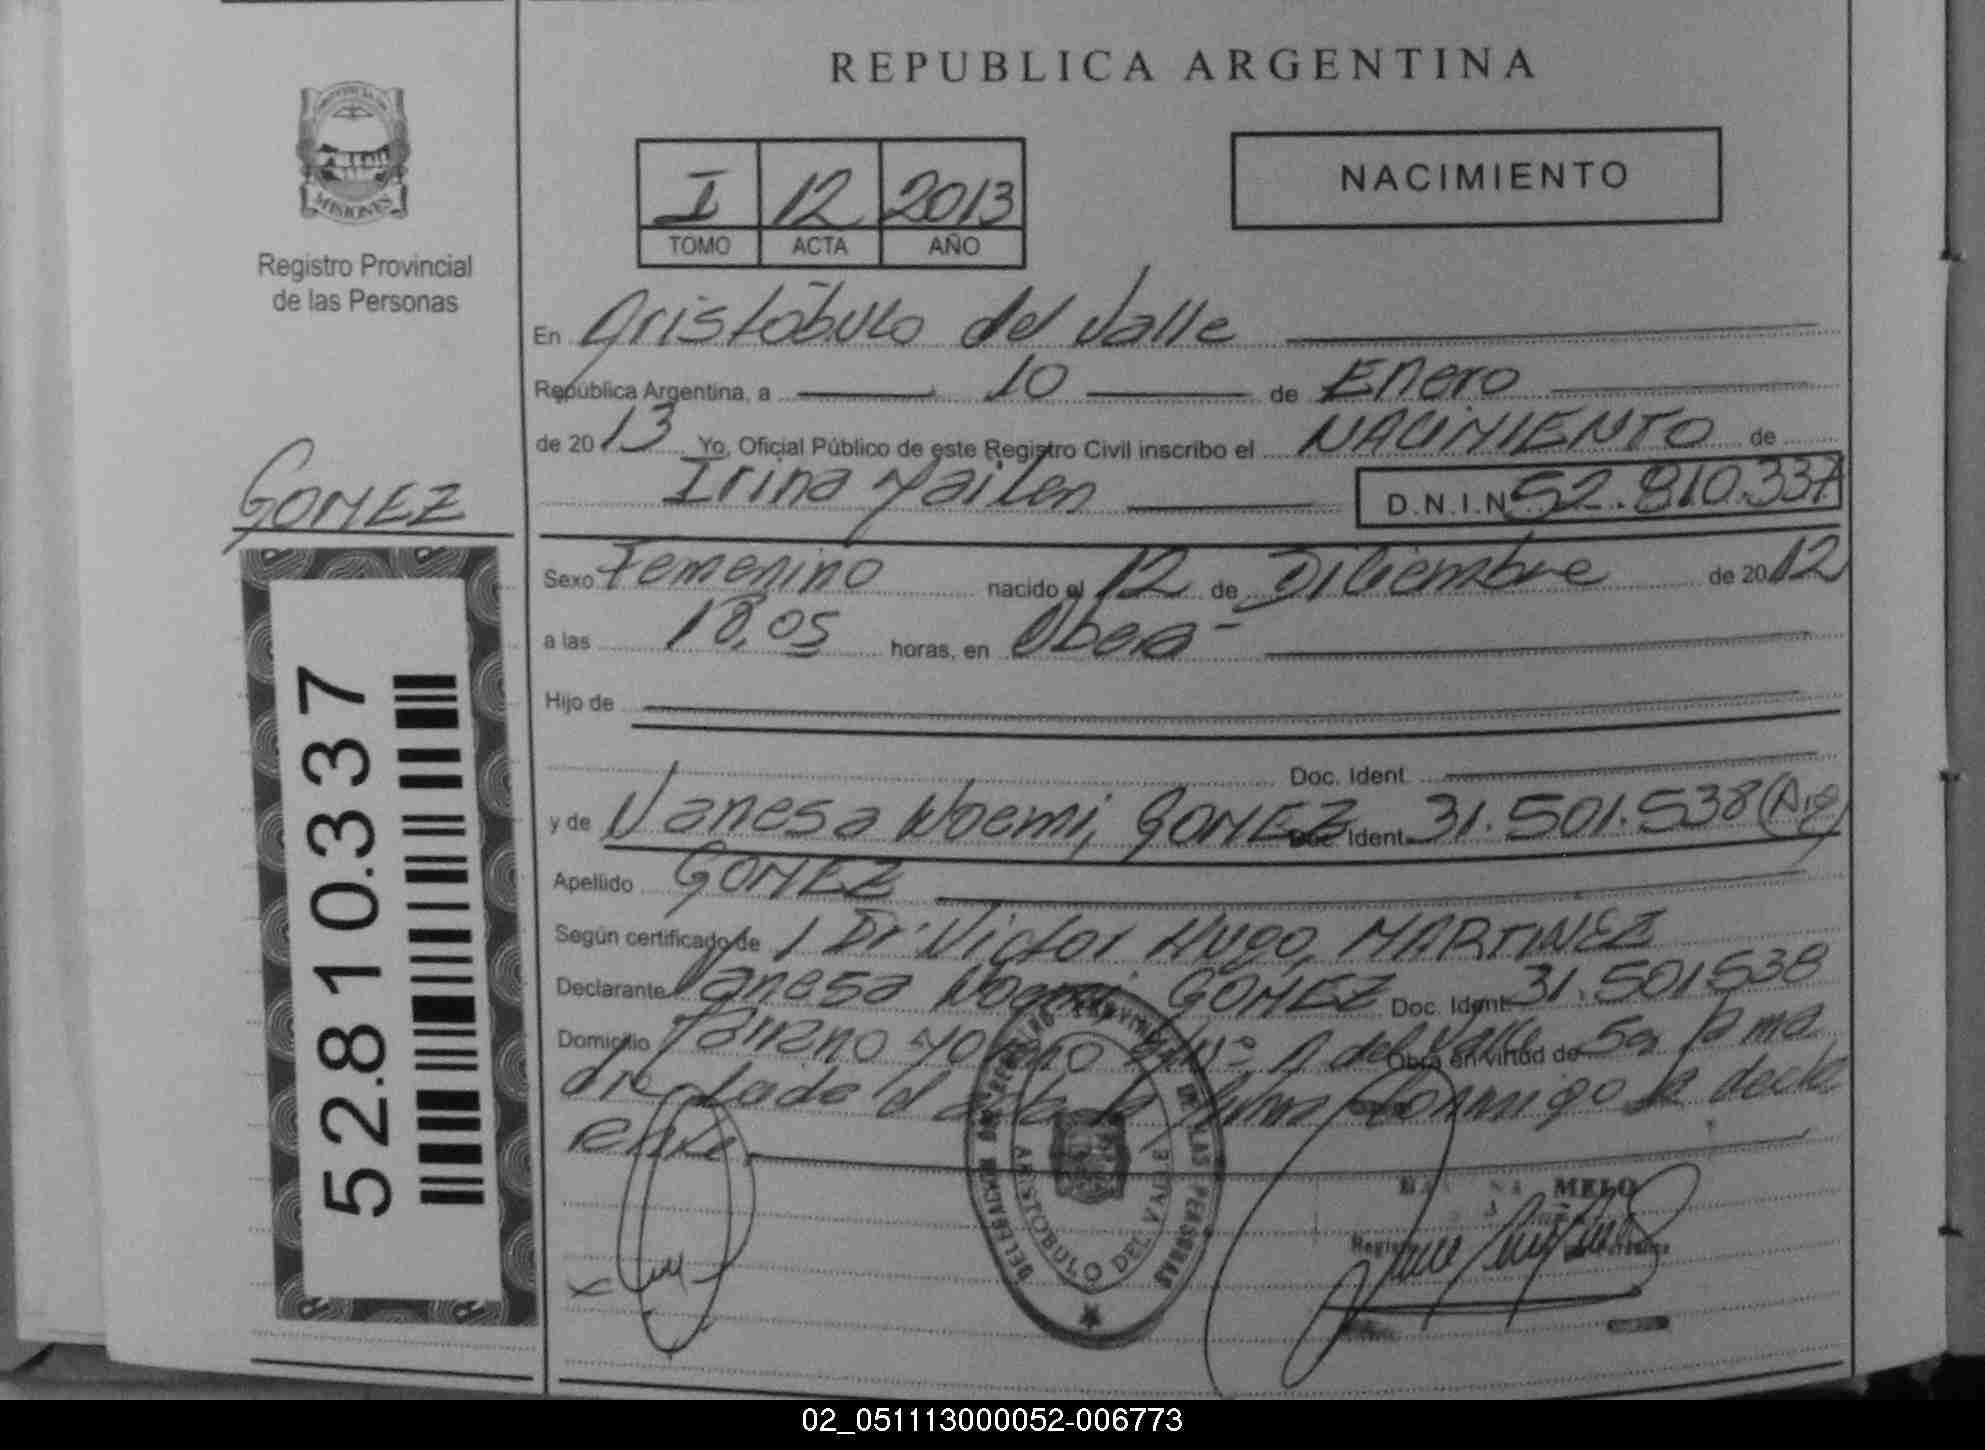 REPUBLICA ARGENTINA
PROVINCIA DE
MISIONES
Registro Provincial
de las Personas
I 12 2013
TOMO ACTA AÑO
NACIMIENTO
En Aristóbulo del Valle
República Argentina, a 10 de Enero
de 2013 Yo, Oficial Público de este Registro Civil inscribo el NACIMIENTO de
Irina Yailen D.N.I.N 52.810.337
GOMEZ
52.810.337
Sexo Femenino nacido el 12 de Diciembre de 2012
a las 18,05 horas, en Oberá
Hijo de
Doc. Ident.
y de Vanesa Noemi, GOMEZ Doc. Ident. 31.501.538 (Arg)
Apellido GOMEZ
Según certificado de Dr. Victor Hugo, MARTINEZ
Declarante Vanesa Noemi GOMEZ Doc. Ident. 31.501538
Domicilio A del Valle Obra en virtud de Ser la ma
dre leida el acta la firma conmigo la decla
rante
DELEGACION DEL REGISTRO PROVINCIAL DE LAS PERSONAS
ARISTOBULO DEL VALLE
MELO
02_051113000052-006773